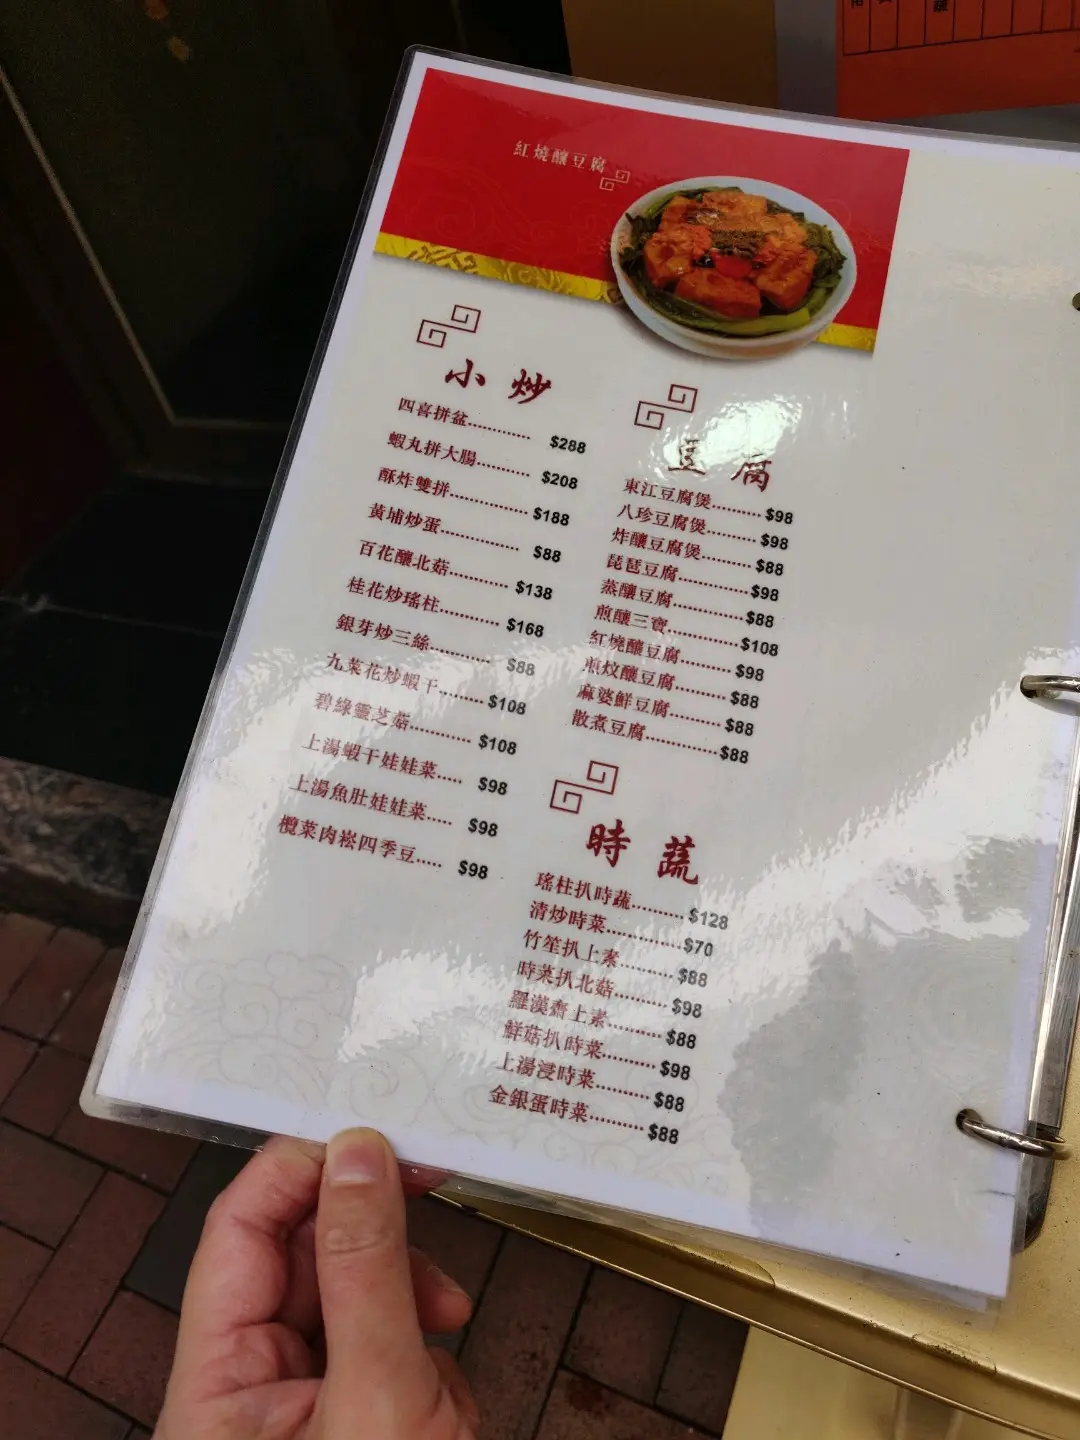 紅燒釀豆腐
小炒
四喜拼盆............ $288
蝦丸拼大腸.......... $208
酥炸雙拼............... $188
黃埔炒蛋............... $88
百花釀北菇........... $138
桂花炒瑤柱........... $168
銀芽炒三絲........... $88
九菜花炒蝦干........ $108
碧綠靈芝菇............ $108
上湯蝦干娃娃菜..... $98
上湯魚肚娃娃菜..... $98
欖菜肉崧四季豆..... $98
豆腐
東江豆腐煲.......... $98
八珍豆腐煲.......... $98
炸釀豆腐煲.......... $88
琵琶豆腐.............. $98
蒸釀豆腐.............. $88
煎釀三寶.............. $108
紅燒釀豆腐.......... $98
煎炆釀豆腐.......... $88
麻婆鮮豆腐.......... $88
散煮豆腐.............. $88
時蔬
瑤柱扒時蔬.......... $128
清炒時菜.............. $70
竹笙扒上素.......... $88
時菜扒北菇.......... $98
羅漢齋上素.......... $88
鮮菇扒時菜.......... $98
上湯浸時菜.......... $88
金銀蛋時菜.......... $88